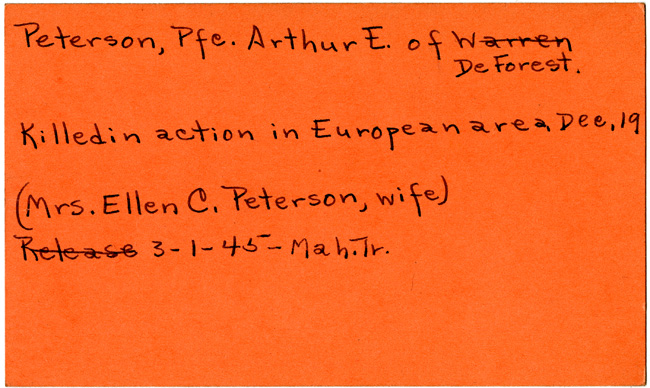 Peterson, Pfc. Arthur E. of Warren
DeForest.
Killed in action in European area, Dec, 19
(Mrs. Ellen C. Peterson, wife)
Release 3-1-45- Mah. Tr.